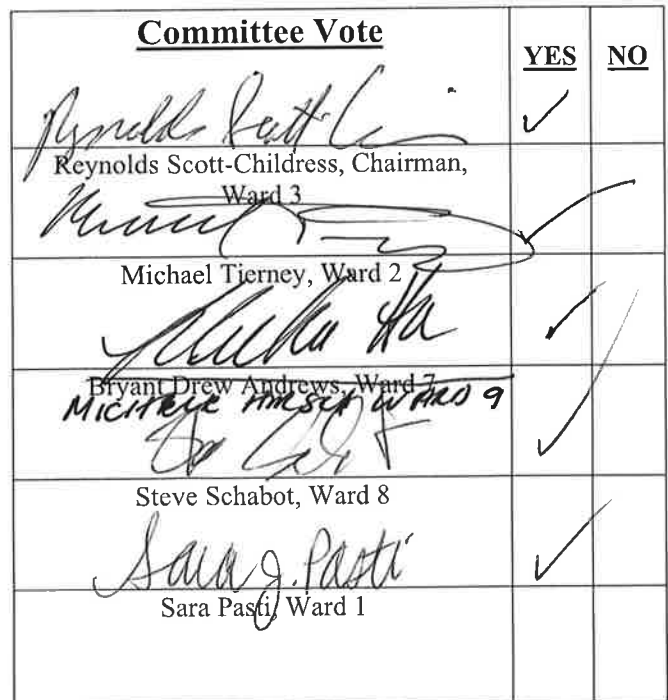 Committee Vote
YES NO
Reynolds Scott-Childress, Chairman,
Ward 3
Michael Tierney, Ward 2
Bryant Drew Andrews, Ward 7
WARD 9
Steve Schabot, Ward 8
Sara J. Pasti
Sara Pasti, Ward 1